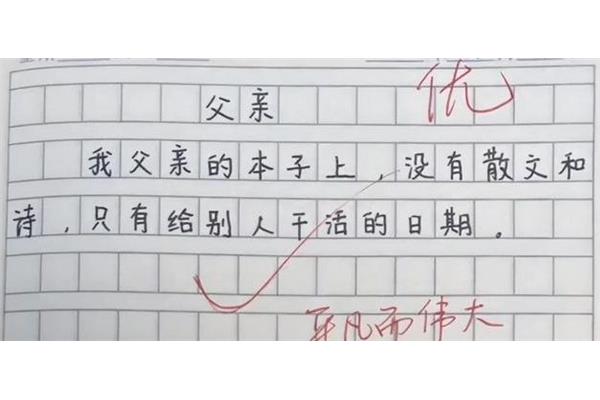 优
父亲
我父亲的本子上，没有散文和
诗，只有给别人干活的日期。
平凡而伟大